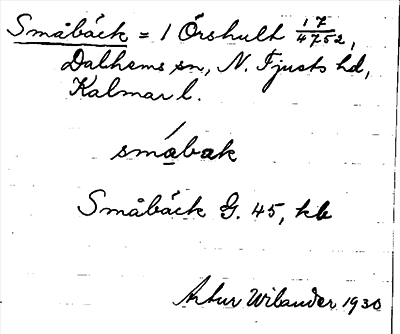 Småbäck = 1 Örshult 17/4752,
Dalhems sn, N. Tjusts hd,
Kalmar l.
småbak
Småbäck G. 45, kb
Artur Wilander 1930